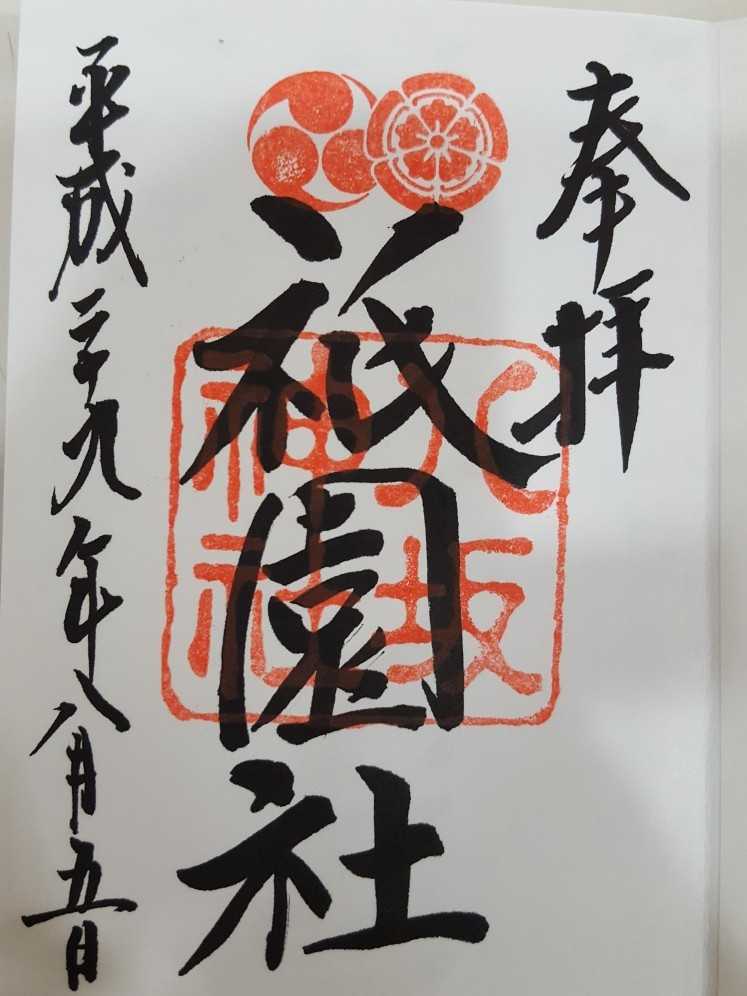 奉拝
八坂
神社
祇園社
平成二十九年八月五日